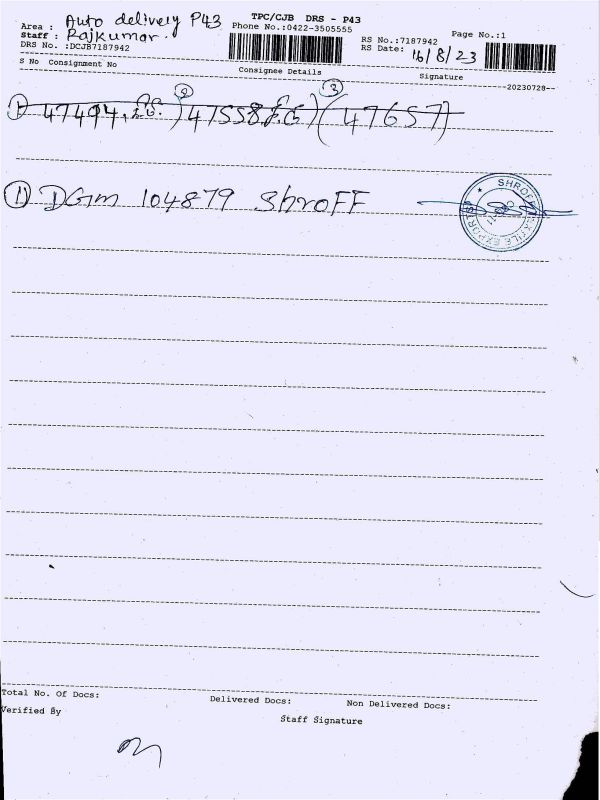 TPC/CJB DRS - P43
Area : Auto delivery P43
Phone No.:0422-3505555
Page No.:1
Staff : Rajkumar.
RS No.:7187942
DRS No. :DCJB7187942
RS Date: 16/8/23
S No Consignment No
Consignee Details
Signature
--20230728--
① 47494 ② 47558 ③ (47657)
① DGM 104879 Shroff
SHROFF TEXTILE EXPORTS
Total No. Of Docs:
Delivered Docs:
Non Delivered Docs:
Verified By
Staff Signature